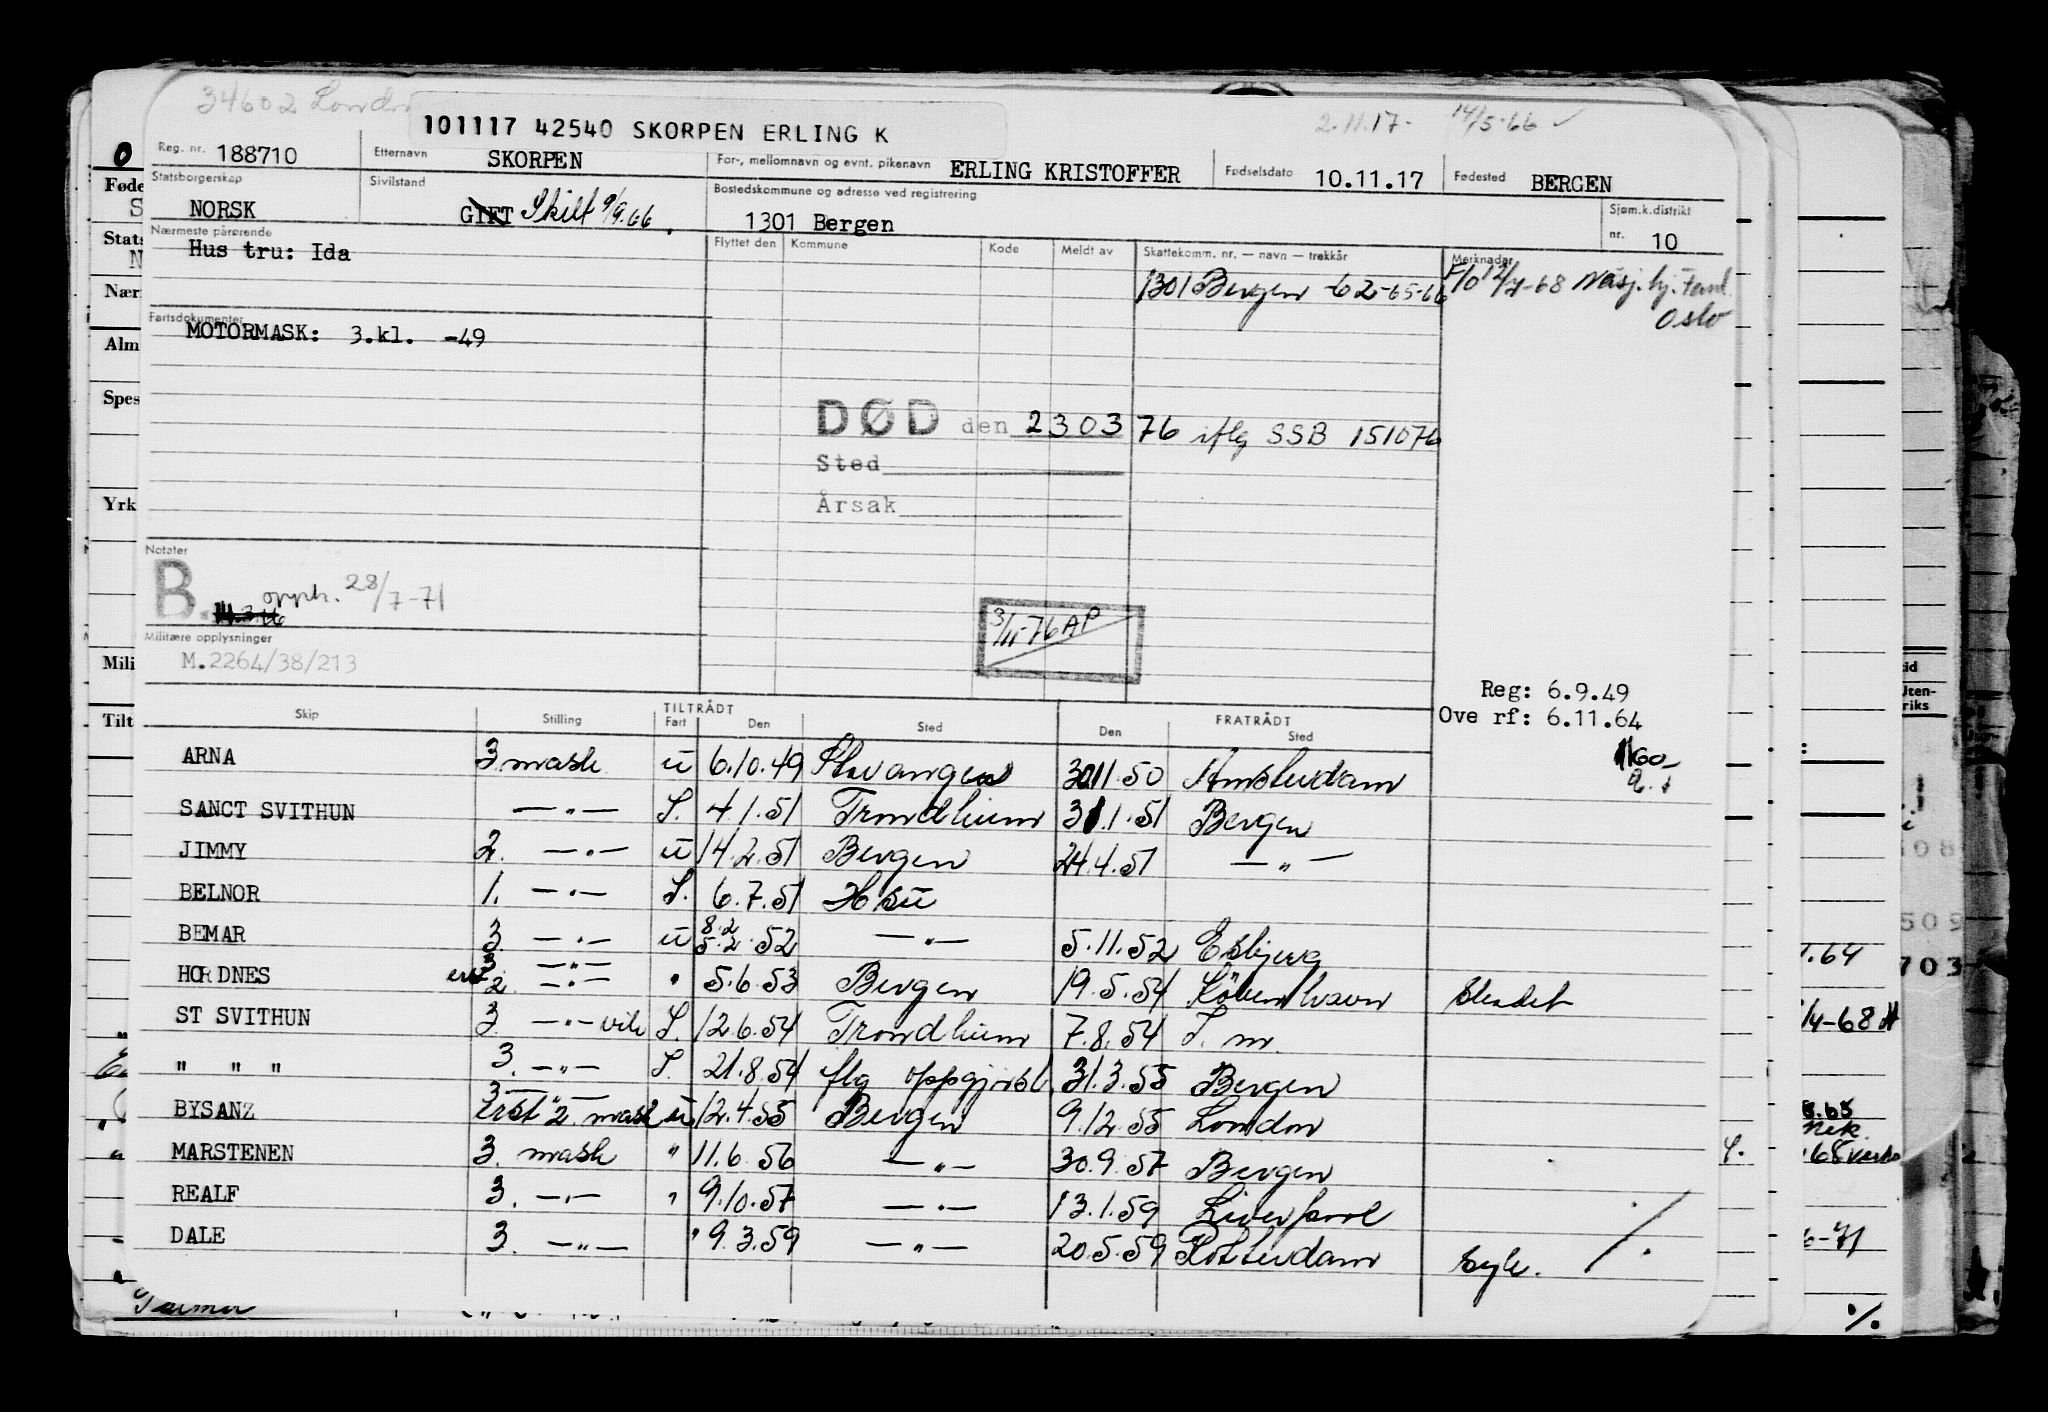 34602 London
101117 42540 SKORPEN ERLING K
2.11.17. 14/5-66
Reg. nr. 188710 Etternavn SKORPEN For-, mellomnavn og evnt. pikenavn ERLING KRISTOFFER Fødselsdato 10.11.17 Fødested BERGEN
Statsborgerskap NORSK Sivilstand GIFT Skilt 9/9.66. Bostedskommune og adresse ved registrering 1301 Bergen Sjøm.k.distrikt nr. 10
Nærmeste pårørende Hus tru: Ida
Flyttet den Kommune Kode Meldt av Skattekomm. nr. — navn — trekkår Merknader
1301 Bergen -62-65-66
F/O 12/7-68 Nasj. hj. Fond. Oslo
Fartsdokumenter
MOTORMASK: 3.kl. -49
DØD den 230376 iflg SSB 151076
Sted
Årsak
Notater
B. opph. 28/7-71
3/11-76 AP
Militære opplysninger
M.2264/38/213
Reg: 6.9.49
Ove rf: 6.11.64
Skip Stilling TILTRÅDT Fart Den Sted FRATRÅDT Den Sted
ARNA 3 mask u 6.10.49 Stavanger 30.11.50 Amsterdam
SANCT SVITHUN —"— S. 4.1.51 Trondheim 31.1.51 Bergen
JIMMY 2. —"— u 14.2.51 Bergen 24.4.51 —"—
BELNOR 1. —"— S. 6.7.51 Hsu
BEMAR 3 —"— u 8.2 5.2.52 —"— 5.11.52 Esbjerg
HORDNES 3 —"— 2. —"— " 5.6.53 Bergen 19.5.54 København skadet
ST SVITHUN 3 —"— vik S. 12.6.54 Trondheim 7.8.54 S. m.
" " " 3. —"— S. 21.8.54 flg oppgj.vibl. 31.3.55 Bergen
BYSANZ 3 —"— erst 2 mask u 12.4.55 Bergen 9.12.55 London
MARSTENEN 3. mask " 11.6.56 —"— 30.9.57 Bergen
REALF 3. —"— " 9.10.57 —"— 13.1.59 Liverpool
DALE 3. —"— " 9.3.59 —"— 20.5.59 Rotterdam syk.
./.